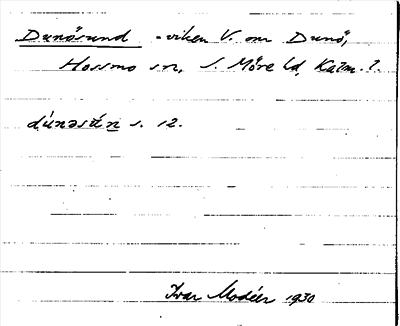 Dunösund - viken V. om Dunö,
Hossmo sn, S. Möre hd, Kalm. l.
dúnəsún s. 12.
Ivar Modéer 1930